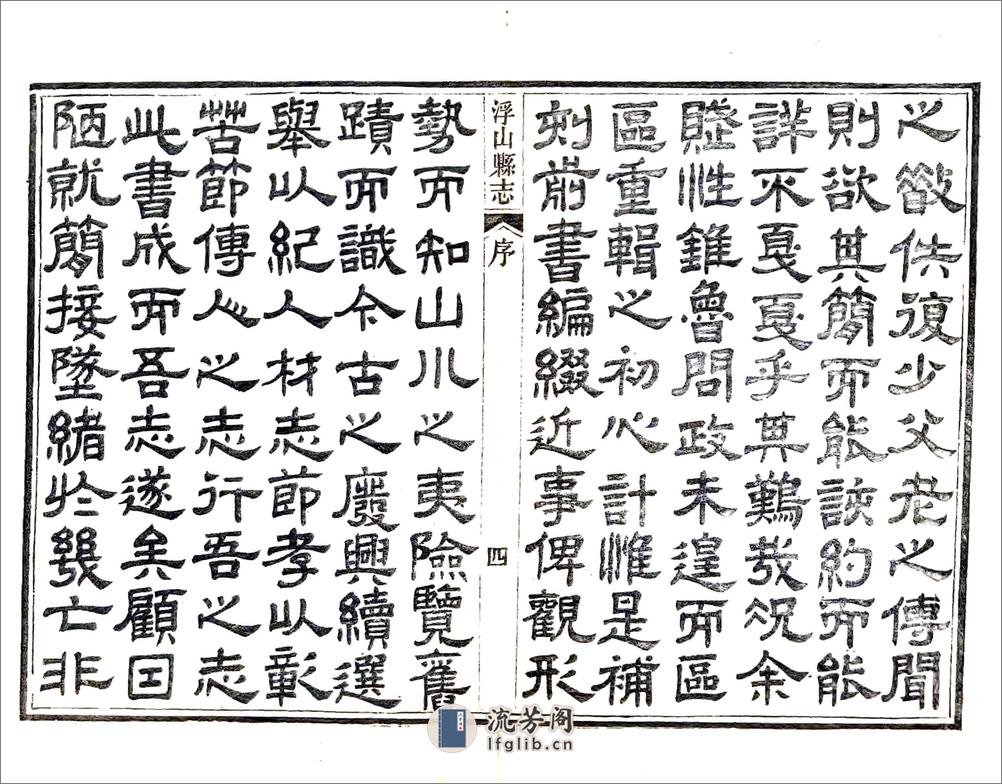 之徵佚復少父老之傳聞
則欲其簡而能該約而能
詳不戛戛乎其難哉况余
賦性錐魯問政未遑而區
區重輯之初心計惟是補
刻前書編綴近事俾觀形
浮山縣志 序 四
勢而知山川之夷險覽舊
蹟而識今古之廢興續選
舉以紀人材志節孝以彰
苦節傳人之志行吾之志
此書成而吾志遂矣顧因
陋就簡接墜緒於幾亡非
流芳阁
lfglib.cn